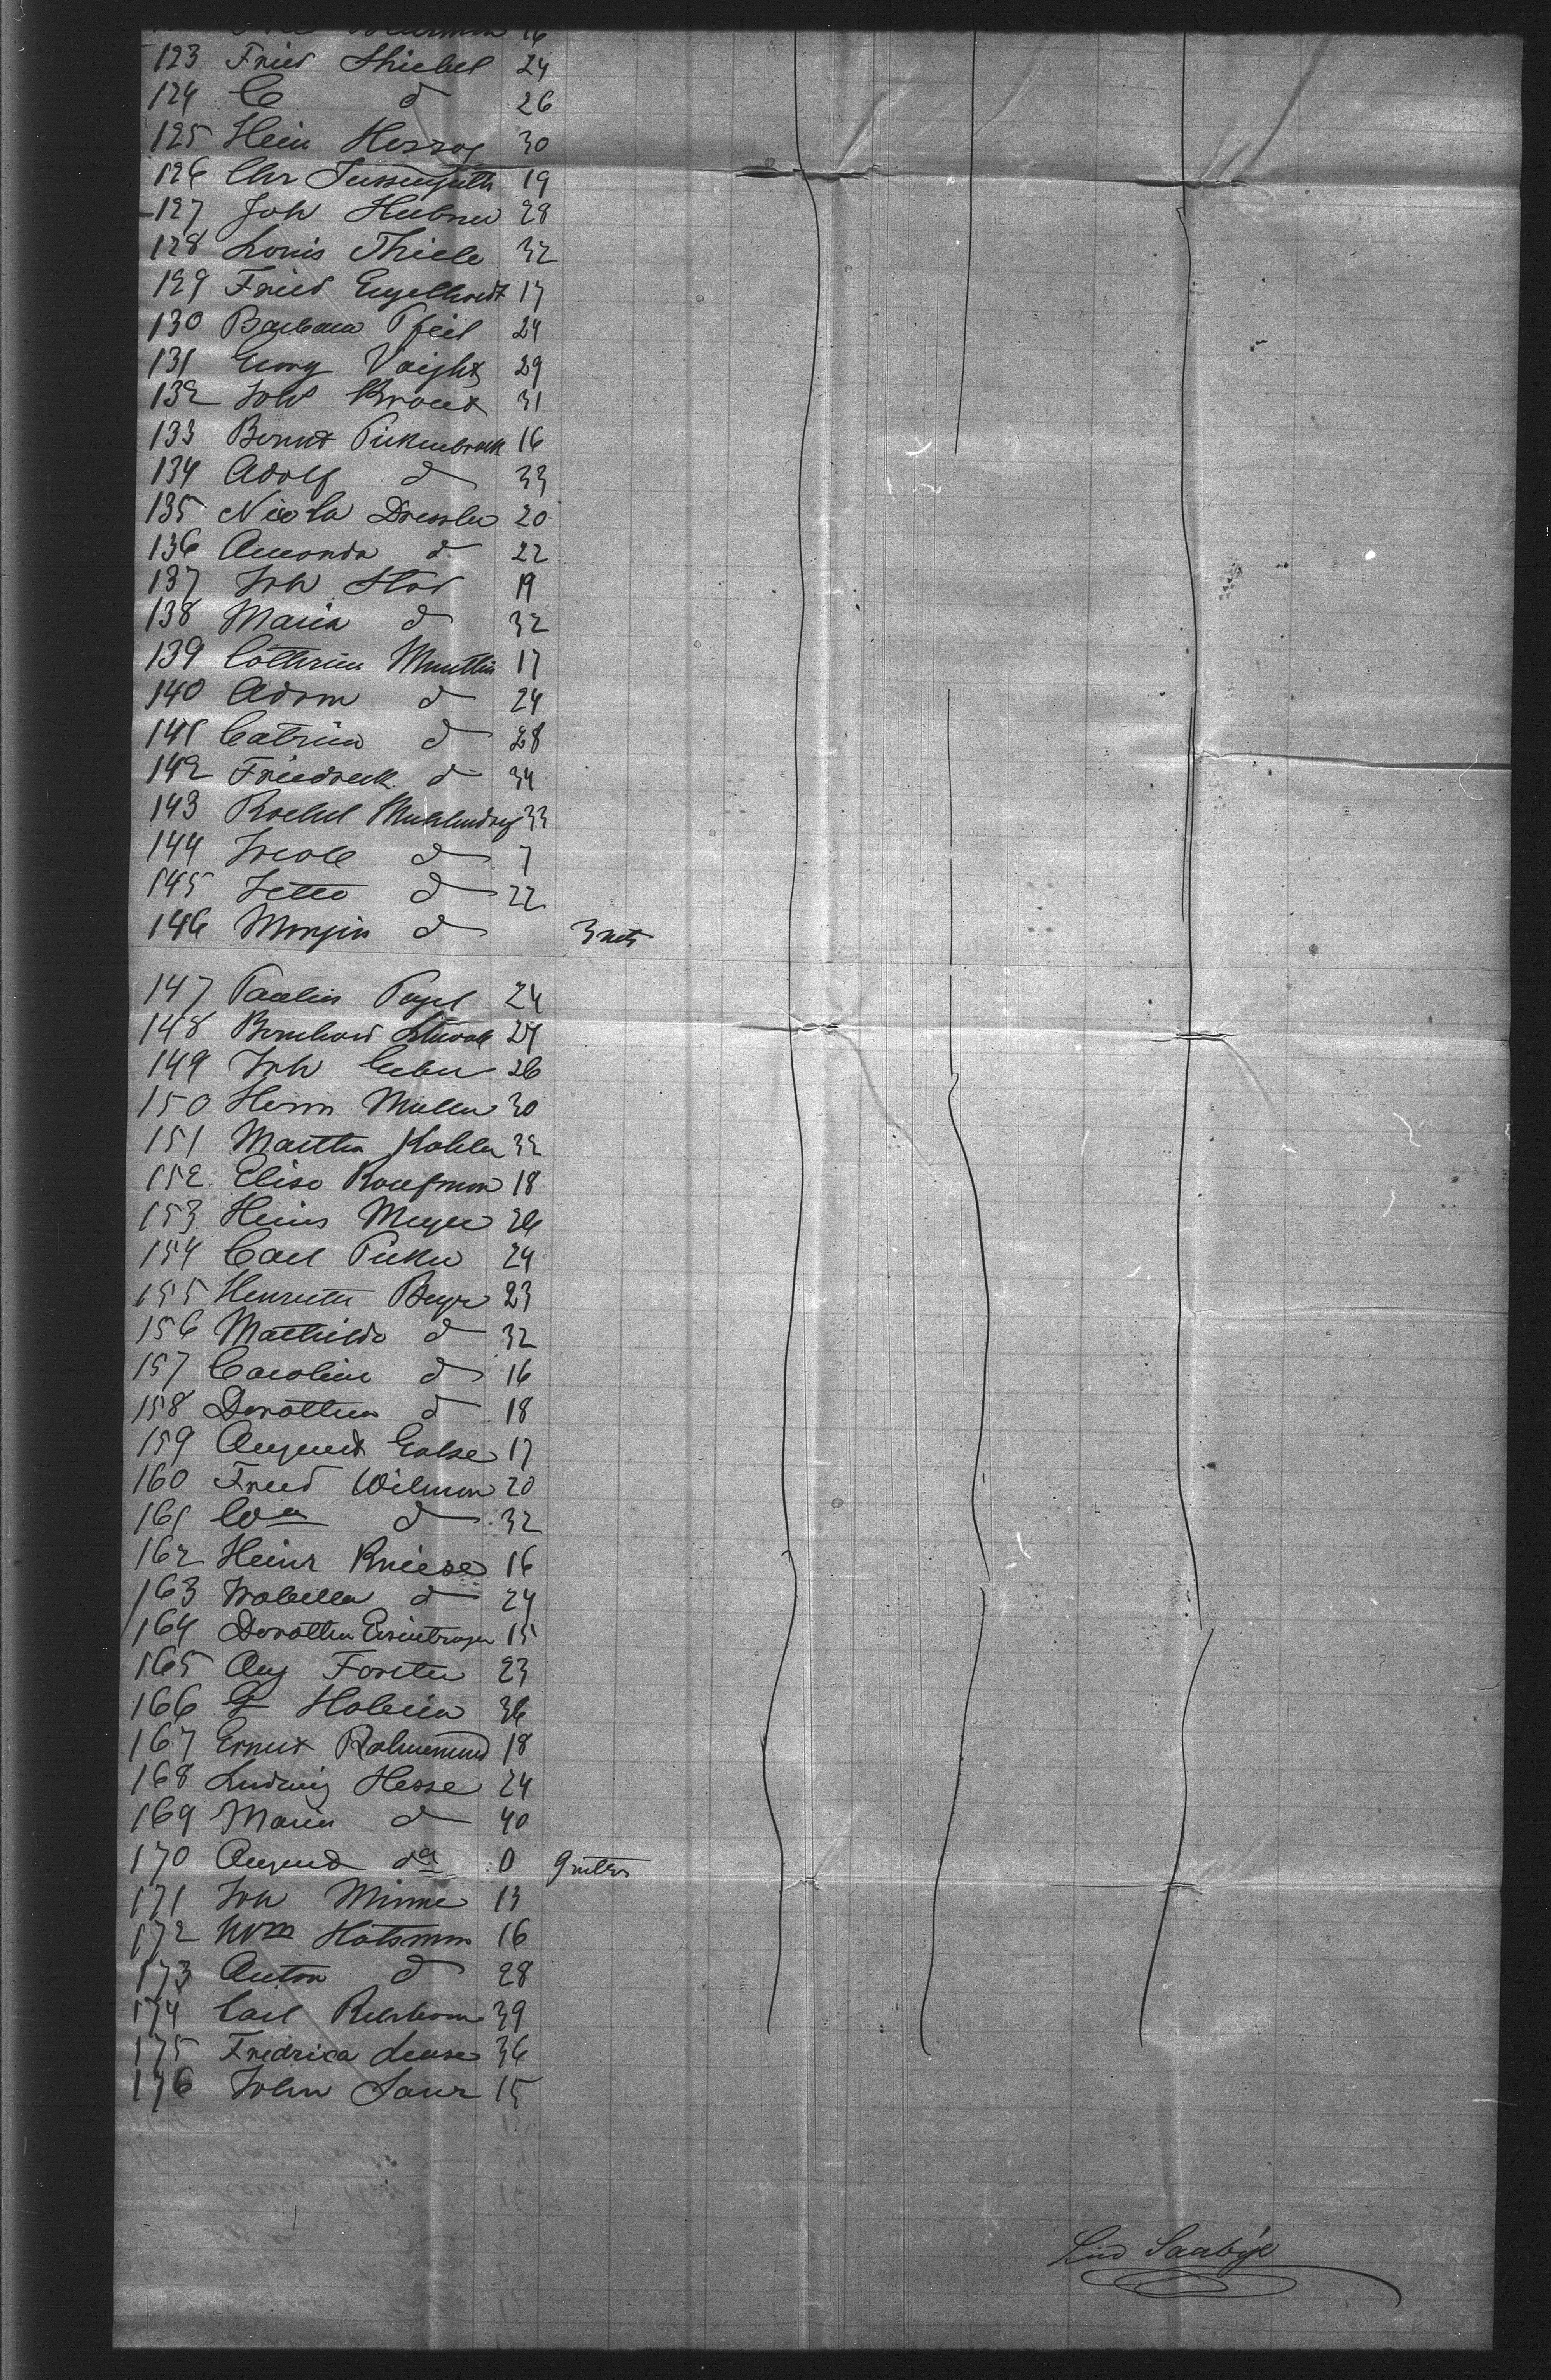 16
123 Fried Stiebel 24
124 C d 26
125 Hein Herzog 30
126 Chr 19
127 Joh Huebner 28
128 Louis Thiele 32
129 Fried Engelhardt 17
130 Barbara Pfeil 24
131 Georg Vaight 29
132 Joh Braut 31
133 Bernt Pickenbrock 16
134 Adolf d 33
135 Nicola Dressler 20
136 Amanda d 22
137 Joh Stor 19
138 Maria d 32
139 Catterina 17
140 Adam d 24
141 Catrina d 28
142 Friedreck d 34
143 Rachel 33
144 Jacob d 7
145 Jette d 22
146 d 3 mts
147 Paulin Pagel 24
148 Bernhard 27
149 Joh 26
150 Herm Muller 30
151 Martha Kohler 32
152 Elise Kaufman 18
153 Heins Meyer 26
154 Carl Picker 24
155 Henriette Beyer 23
156 Mathilde d 32
157 Caroline d 16
158 Dorothea d 18
159 August 17
160 Fried Wilman 20
161 Wm d 32
162 Heinr Kniese 16
163 Isabella d 24
164 Dorothea 15
165 Aug Forster 23
166 G 36
167 Ernest 18
168 Ludwig Hesse 24
169 Maria d 40
170 August do 0 9 mths
171 Joh Minne 13
172 Wm Hotsman 16
173 Anton d 28
174 Carl 39
175 Fredrica 36
176 John Saur 15
Saabye